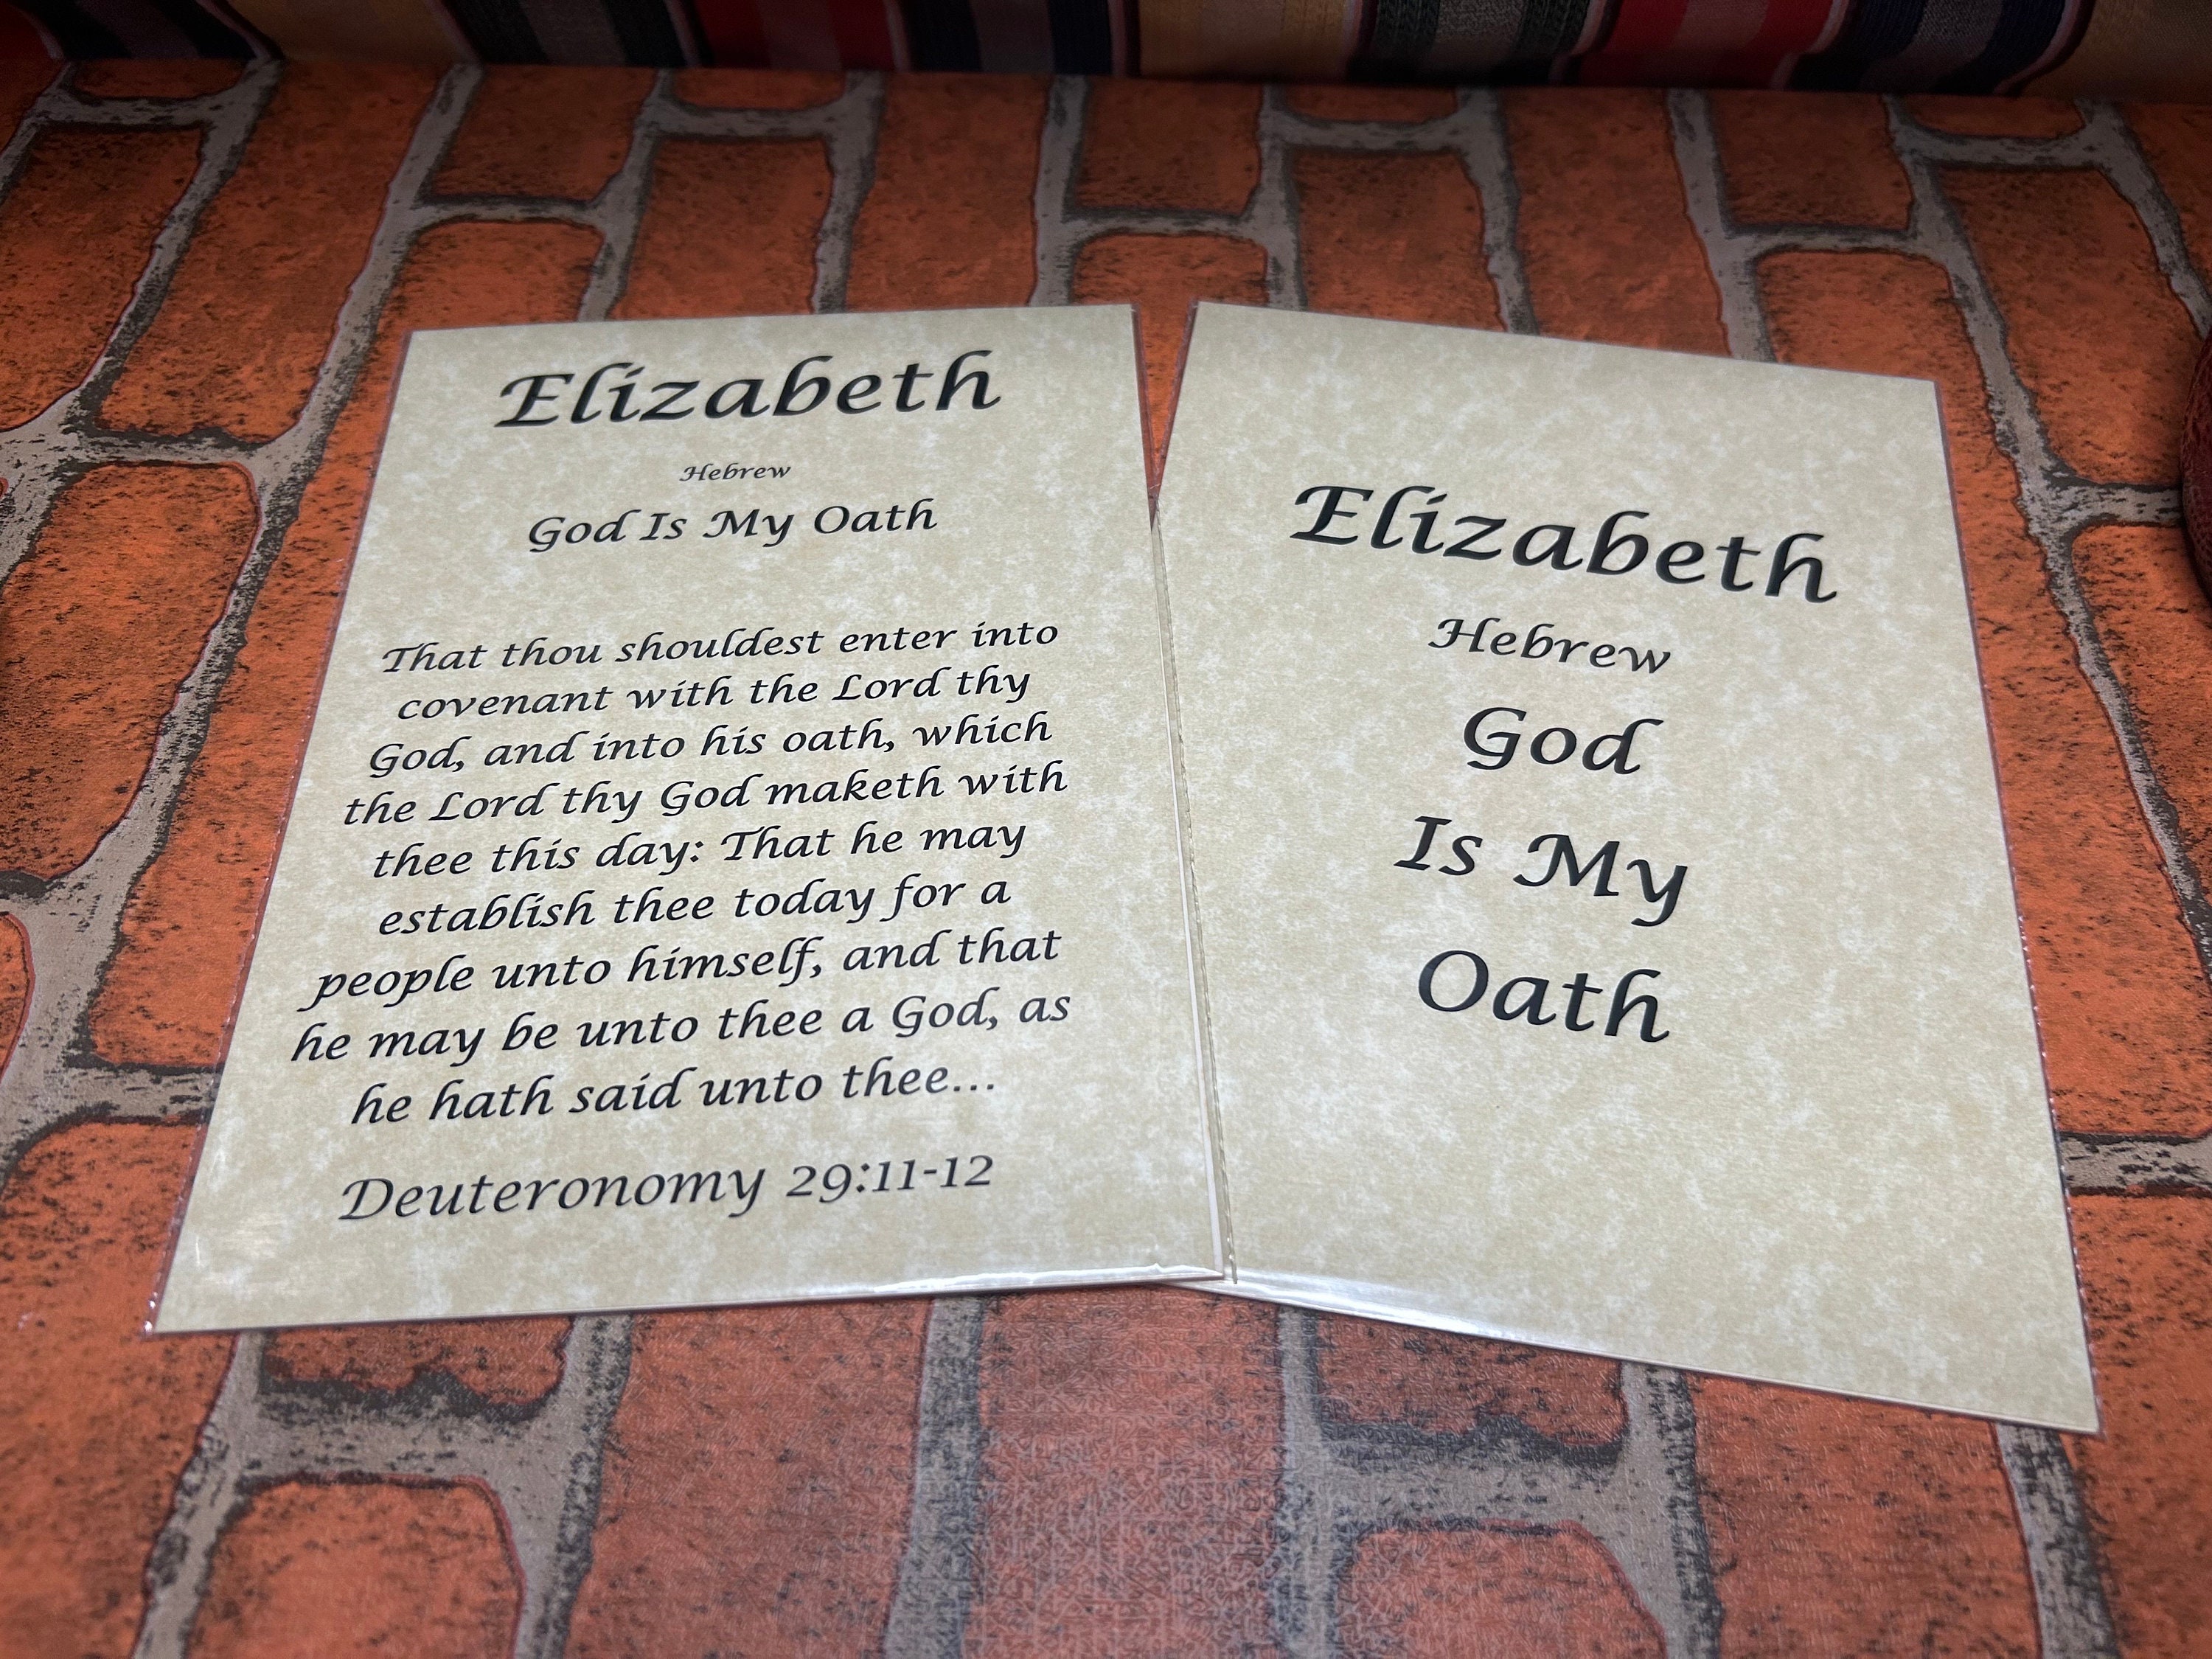 Elizabeth
Hebrew
God Is My Oath
That thou shouldest enter into
covenant with the Lord thy
God, and into his oath, which
the Lord thy God maketh with
thee this day: That he may
establish thee today for a
people unto himself, and that
he may be unto thee a God, as
he hath said unto thee...
Deuteronomy 29:11-12
Elizabeth
Hebrew
God
Is My
Oath